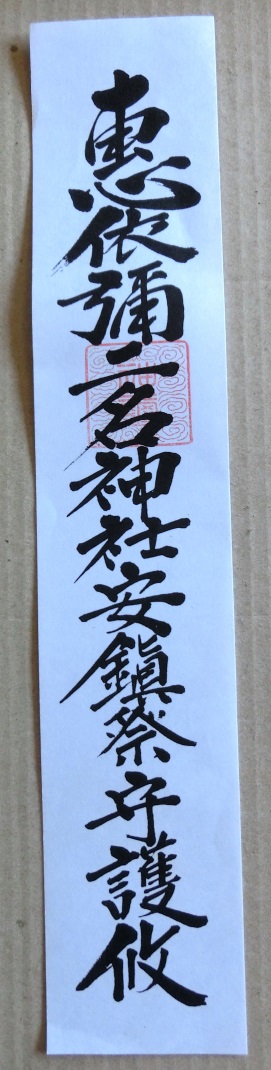 恵依彌二名神社安鎮祭守護攸